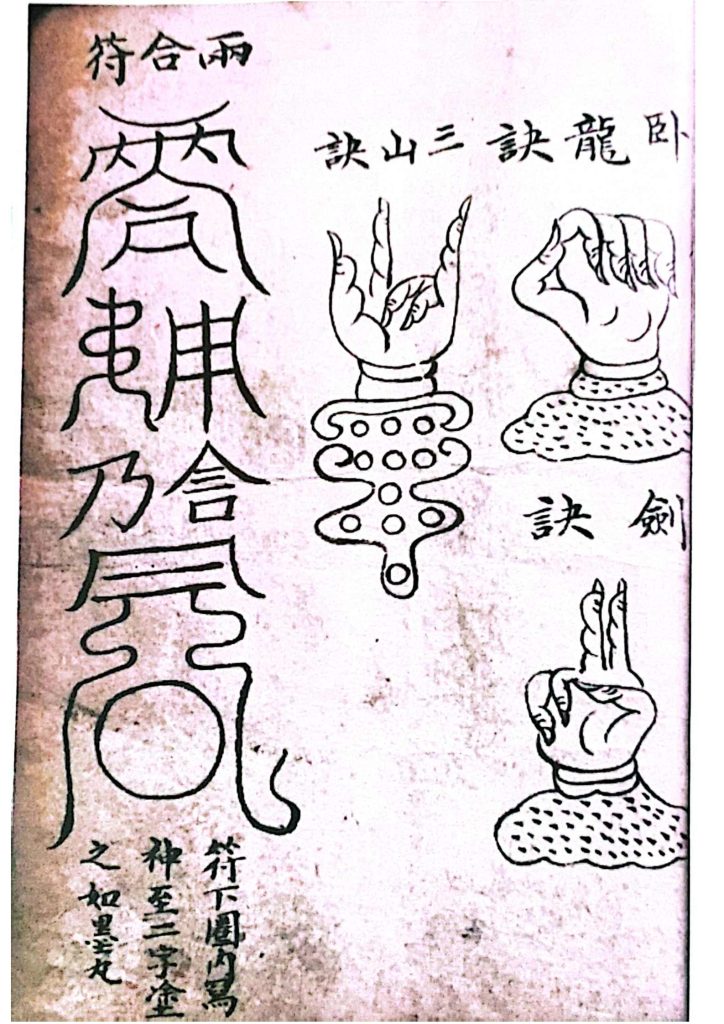 卧龍訣
三山訣
劍訣
雨合符
符下圈內寫
神至二字塗
之如墨丸